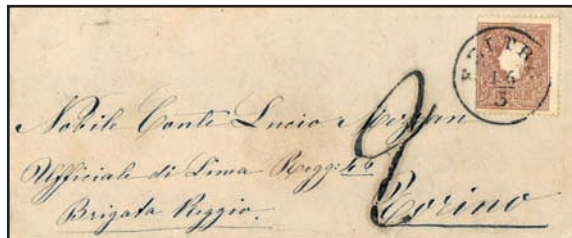 FELTRE
Nobile Conte Lucio Mezzan
Ufficiale di Linea Regg:
Brigata Reggio.
2
Torino